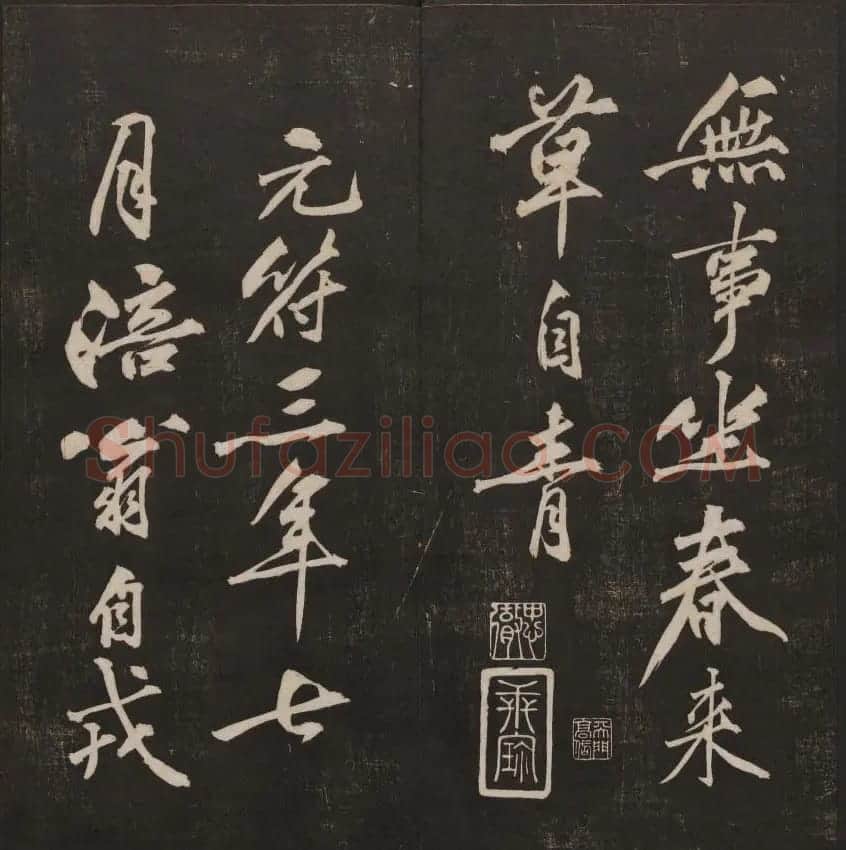 無事坐春来
草自青
元符三年七
月涪翁自戎
Shufaziliao.COM